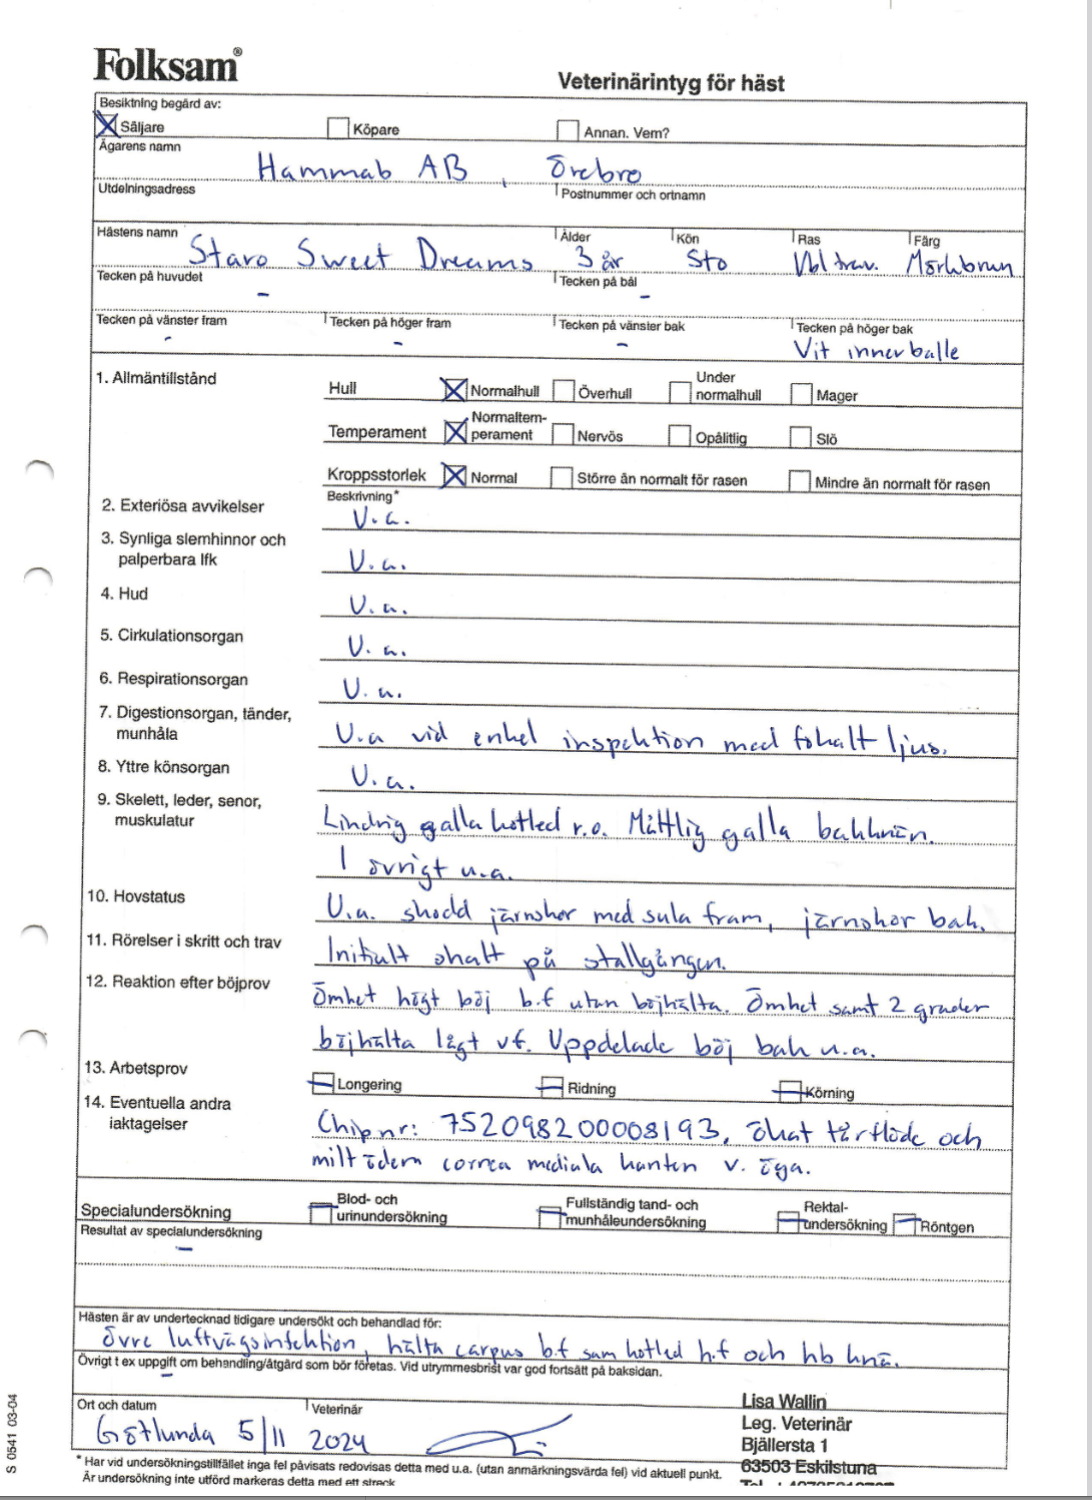 Folksam®
Veterinärintyg för häst
Besiktning begärd av:
Säljare Köpare Annan. Vem?
Ägarens namn
Hammab AB, Örebro
Utdelningsadress Postnummer och ortnamn
Hästens namn Ålder Kön Ras Färg
Staro Sweet Dreams 3 år Sto Vbl trav. Mörkbrun
Tecken på huvudet Tecken på bål
- -
Tecken på vänster fram Tecken på höger fram Tecken på vänster bak Tecken på höger bak
- - - Vit innerballe
1. Allmäntillstånd Hull Normalhull Överhull Under normalhull Mager
Temperament Normaltemperament Nervös Opålitlig Slö
Kroppsstorlek Normal Större än normalt för rasen Mindre än normalt för rasen
Beskrivning*
2. Exteriösa avvikelser U.a.
3. Synliga slemhinnor och
palperbara lfk U.a.
4. Hud U.a.
5. Cirkulationsorgan U.a.
6. Respirationsorgan U.a.
7. Digestionsorgan, tänder,
munhåla U.a vid enkel inspektion med fokalt ljus.
8. Yttre könsorgan U.a.
9. Skelett, leder, senor,
muskulatur Lindrig galla kotled r.o. Måttlig galla bakknän.
I övrigt u.a.
10. Hovstatus U.a. skodd järnskor med sula fram, järnskor bak.
11. Rörelser i skritt och trav Initialt ohalt på stallgången.
12. Reaktion efter böjprov Ömhet högt böj b.f utan böjhälta. Ömhet samt 2 grader
böjhälta lågt vf. Uppdelade böj bak u.a.
13. Arbetsprov Longering Ridning Körning
14. Eventuella andra
iaktagelser Chipnr: 752098200008193, ökat tårflöde och
milt ödem cornea mediala kanten v. öga.
Specialundersökning Blod- och urinundersökning Fullständig tand- och munhåleundersökning Rektal-undersökning Röntgen
Resultat av specialundersökning
-
Hästen är av undertecknad tidigare undersökt och behandlad för:
övre luftvägsinfektion, hälta carpus b.f sam kotled h.f och hb knä.
Övrigt t ex uppgift om behandling/åtgärd som bör företas. Vid utrymmesbrist var god fortsätt på baksidan.
-
Ort och datum Veterinär
Götlunda 5/11 2024
Lisa Wallin
Leg. Veterinär
Bjällersta 1
63503 Eskilstuna
* Har vid undersökningstillfället inga fel påvisats redovisas detta med u.a. (utan anmärkningsvärda fel) vid aktuell punkt.
Är undersökning inte utförd markeras detta med ett streck
S 0541 03-04